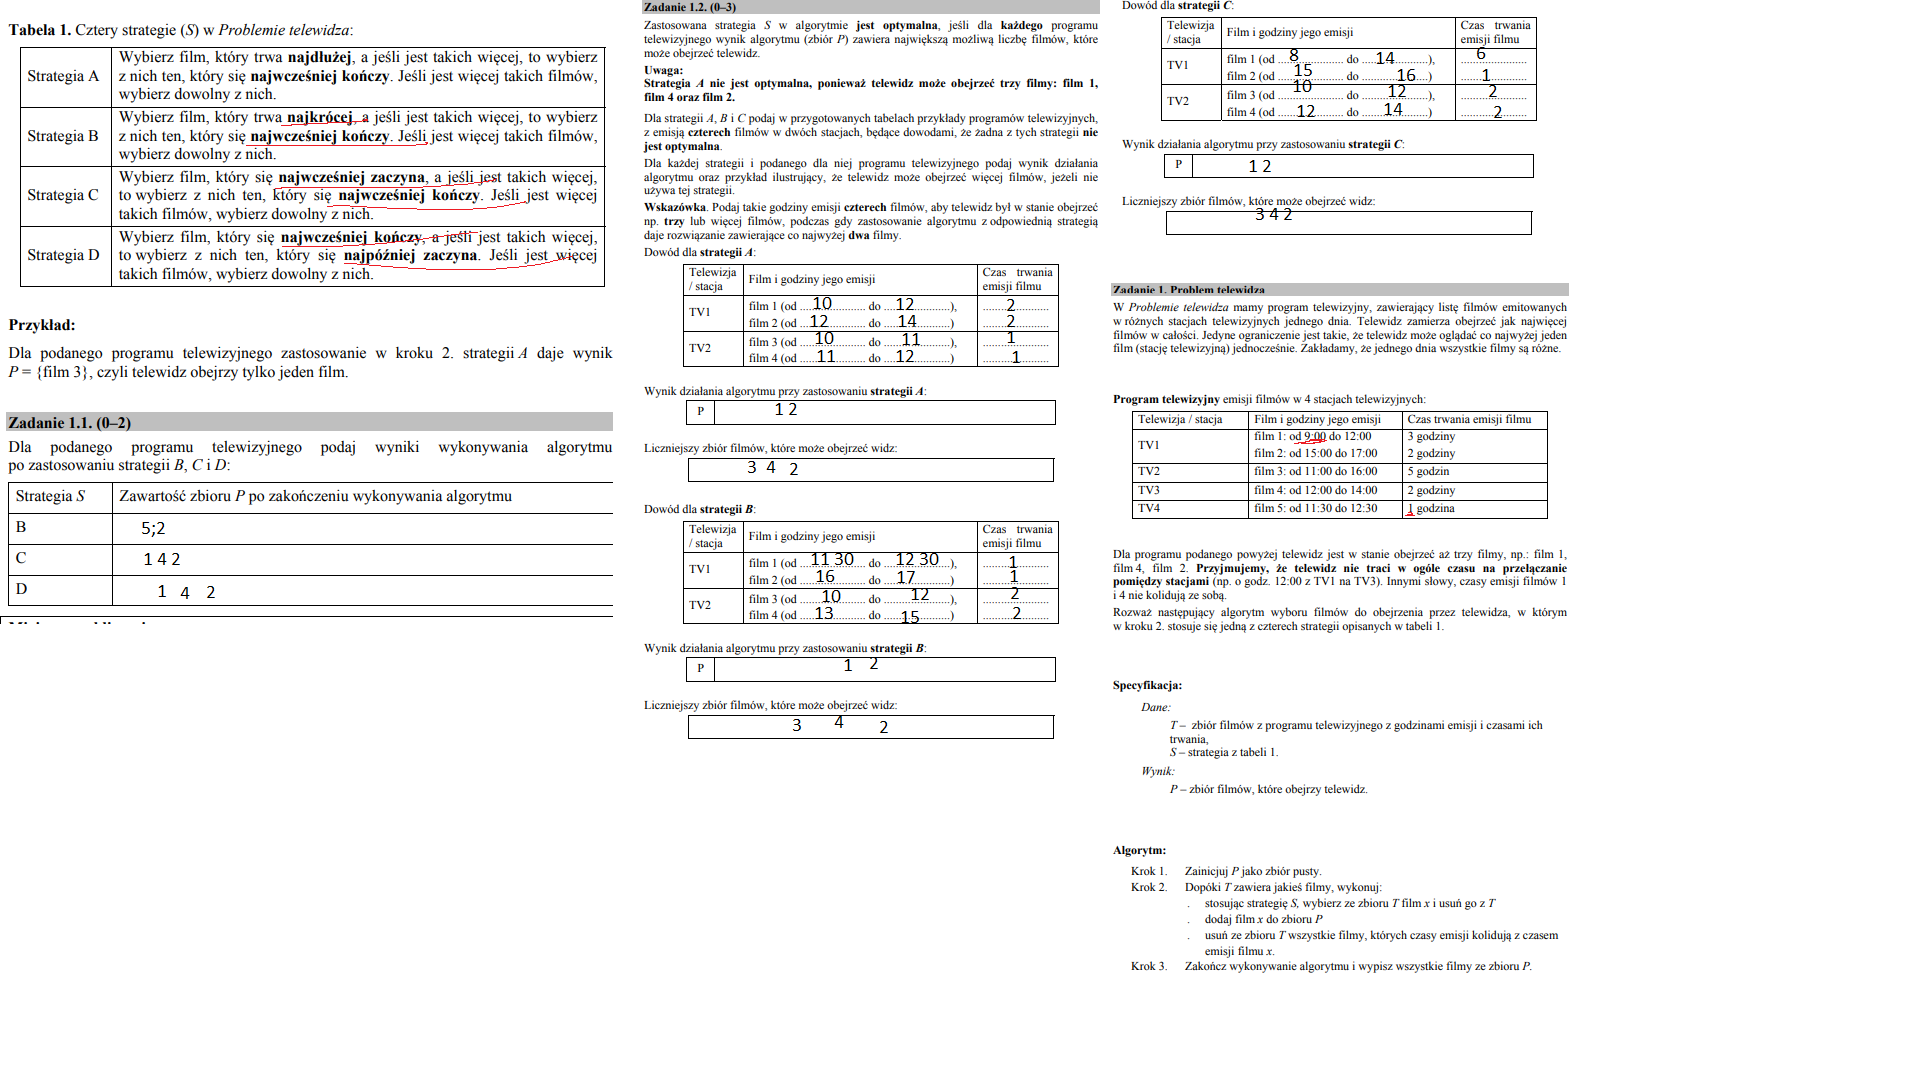 Tabela 1. Cztery strategie (S) w Problemie telewidza:
Strategia A
Wybierz film, który trwa najdłużej, a jeśli jest takich więcej, to wybierz
z nich ten, który się najwcześniej kończy. Jeśli jest więcej takich filmów,
wybierz dowolny z nich.
Strategia B
Wybierz film, który trwa najkrócej, a jeśli jest takich więcej, to wybierz
z nich ten, który się najwcześniej kończy. Jeśli jest więcej takich filmów,
wybierz dowolny z nich.
Strategia C
Wybierz film, który się najwcześniej zaczyna, a jeśli jest takich więcej,
to wybierz z nich ten, który się najwcześniej kończy. Jeśli jest więcej
takich filmów, wybierz dowolny z nich.
Strategia D
Wybierz film, który się najwcześniej kończy, a jeśli jest takich więcej,
to wybierz z nich ten, który się najpóźniej zaczyna. Jeśli jest więcej
takich filmów, wybierz dowolny z nich.
Przykład:
Dla podanego programu telewizyjnego zastosowanie w kroku 2. strategii A daje wynik
P = {film 3}, czyli telewidz obejrzy tylko jeden film.
Zadanie 1.1. (0–2)
Dla podanego programu telewizyjnego podaj wyniki wykonywania algorytmu
po zastosowaniu strategii B, C i D:
Strategia S Zawartość zbioru P po zakończeniu wykonywania algorytmu
B 5;2
C 1 4 2
D 1 4 2
Zadanie 1.2. (0–3)
Zastosowana strategia S w algorytmie jest optymalna, jeśli dla każdego programu
telewizyjnego wynik algorytmu (zbiór P) zawiera największą możliwą liczbę filmów, które
może obejrzeć telewidz.
Uwaga:
Strategia A nie jest optymalna, ponieważ telewidz może obejrzeć trzy filmy: film 1,
film 4 oraz film 2.
Dla strategii A, B i C podaj w przygotowanych tabelach przykłady programów telewizyjnych,
z emisją czterech filmów w dwóch stacjach, będące dowodami, że żadna z tych strategii nie
jest optymalna.
Dla każdej strategii i podanego dla niej programu telewizyjnego podaj wynik działania
algorytmu oraz przykład ilustrujący, że telewidz może obejrzeć więcej filmów, jeżeli nie
używa tej strategii.
Wskazówka. Podaj takie godziny emisji czterech filmów, aby telewidz był w stanie obejrzeć
np. trzy lub więcej filmów, podczas gdy zastosowanie algorytmu z odpowiednią strategią
daje rozwiązanie zawierające co najwyżej dwa filmy.
Dowód dla strategii A:
Telewizja / stacja Film i godziny jego emisji Czas trwania emisji filmu
TV1
film 1 (od 10 do 12), 2
film 2 (od 12 do 14) 2
TV2
film 3 (od 10 do 11), 1
film 4 (od 11 do 12) 1
Wynik działania algorytmu przy zastosowaniu strategii A:
P 1 2
Liczniejszy zbiór filmów, które może obejrzeć widz:
3 4 2
Dowód dla strategii B:
Telewizja / stacja Film i godziny jego emisji Czas trwania emisji filmu
TV1
film 1 (od 11 30 do 12 30), 1
film 2 (od 16 do 17) 1
TV2
film 3 (od 10 do 12), 2
film 4 (od 13 do 15) 2
Wynik działania algorytmu przy zastosowaniu strategii B:
P 1 2
Liczniejszy zbiór filmów, które może obejrzeć widz:
3 4 2
Dowód dla strategii C:
Telewizja / stacja Film i godziny jego emisji Czas trwania emisji filmu
TV1
film 1 (od 8 do 14), 6
film 2 (od 15 do 16) 1
TV2
film 3 (od 10 do 12), 2
film 4 (od 12 do 14) 2
Wynik działania algorytmu przy zastosowaniu strategii C:
P 1 2
Liczniejszy zbiór filmów, które może obejrzeć widz:
3 4 2
Zadanie 1. Problem telewidza
W Problemie telewidza mamy program telewizyjny, zawierający listę filmów emitowanych
w różnych stacjach telewizyjnych jednego dnia. Telewidz zamierza obejrzeć jak najwięcej
filmów w całości. Jedyne ograniczenie jest takie, że telewidz może oglądać co najwyżej jeden
film (stację telewizyjną) jednocześnie. Zakładamy, że jednego dnia wszystkie filmy są różne.
Program telewizyjny emisji filmów w 4 stacjach telewizyjnych:
Telewizja / stacja Film i godziny jego emisji Czas trwania emisji filmu
TV1
film 1: od 9:00 do 12:00 3 godziny
film 2: od 15:00 do 17:00 2 godziny
TV2 film 3: od 11:00 do 16:00 5 godzin
TV3 film 4: od 12:00 do 14:00 2 godziny
TV4 film 5: od 11:30 do 12:30 1 godzina
Dla programu podanego powyżej telewidz jest w stanie obejrzeć aż trzy filmy, np.: film 1,
film 4, film 2. Przyjmujemy, że telewidz nie traci w ogóle czasu na przełączanie
pomiędzy stacjami (np. o godz. 12:00 z TV1 na TV3). Innymi słowy, czasy emisji filmów 1
i 4 nie kolidują ze sobą.
Rozważ następujący algorytm wyboru filmów do obejrzenia przez telewidza, w którym
w kroku 2. stosuje się jedną z czterech strategii opisanych w tabeli 1.
Specyfikacja:
Dane:
T – zbiór filmów z programu telewizyjnego z godzinami emisji i czasami ich
trwania,
S – strategia z tabeli 1.
Wynik:
P – zbiór filmów, które obejrzy telewidz.
Algorytm:
Krok 1. Zainicjuj P jako zbiór pusty.
Krok 2. Dopóki T zawiera jakieś filmy, wykonuj:
. stosując strategię S, wybierz ze zbioru T film x i usuń go z T
. dodaj film x do zbioru P
. usuń ze zbioru T wszystkie filmy, których czasy emisji kolidują z czasem
emisji filmu x.
Krok 3. Zakończ wykonywanie algorytmu i wypisz wszystkie filmy ze zbioru P.